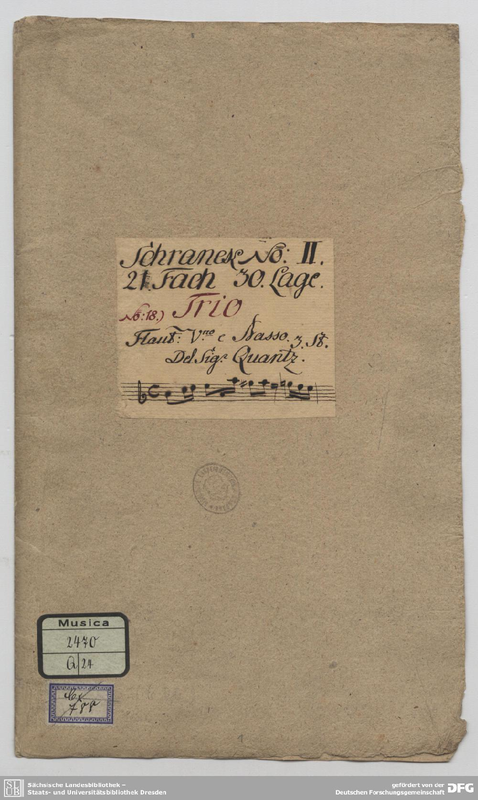 Schranck No: II.
21 Fach 30. Lage.
No: 18.) Trio
Flaut: V.no e Basso. 3. St.
Del Sig.r Quantz.
Musica
2470
Q/24
Sächsische Landesbibliothek –
Staats- und Universitätsbibliothek Dresden
gefördert von der
Deutschen Forschungsgemeinschaft
DFG